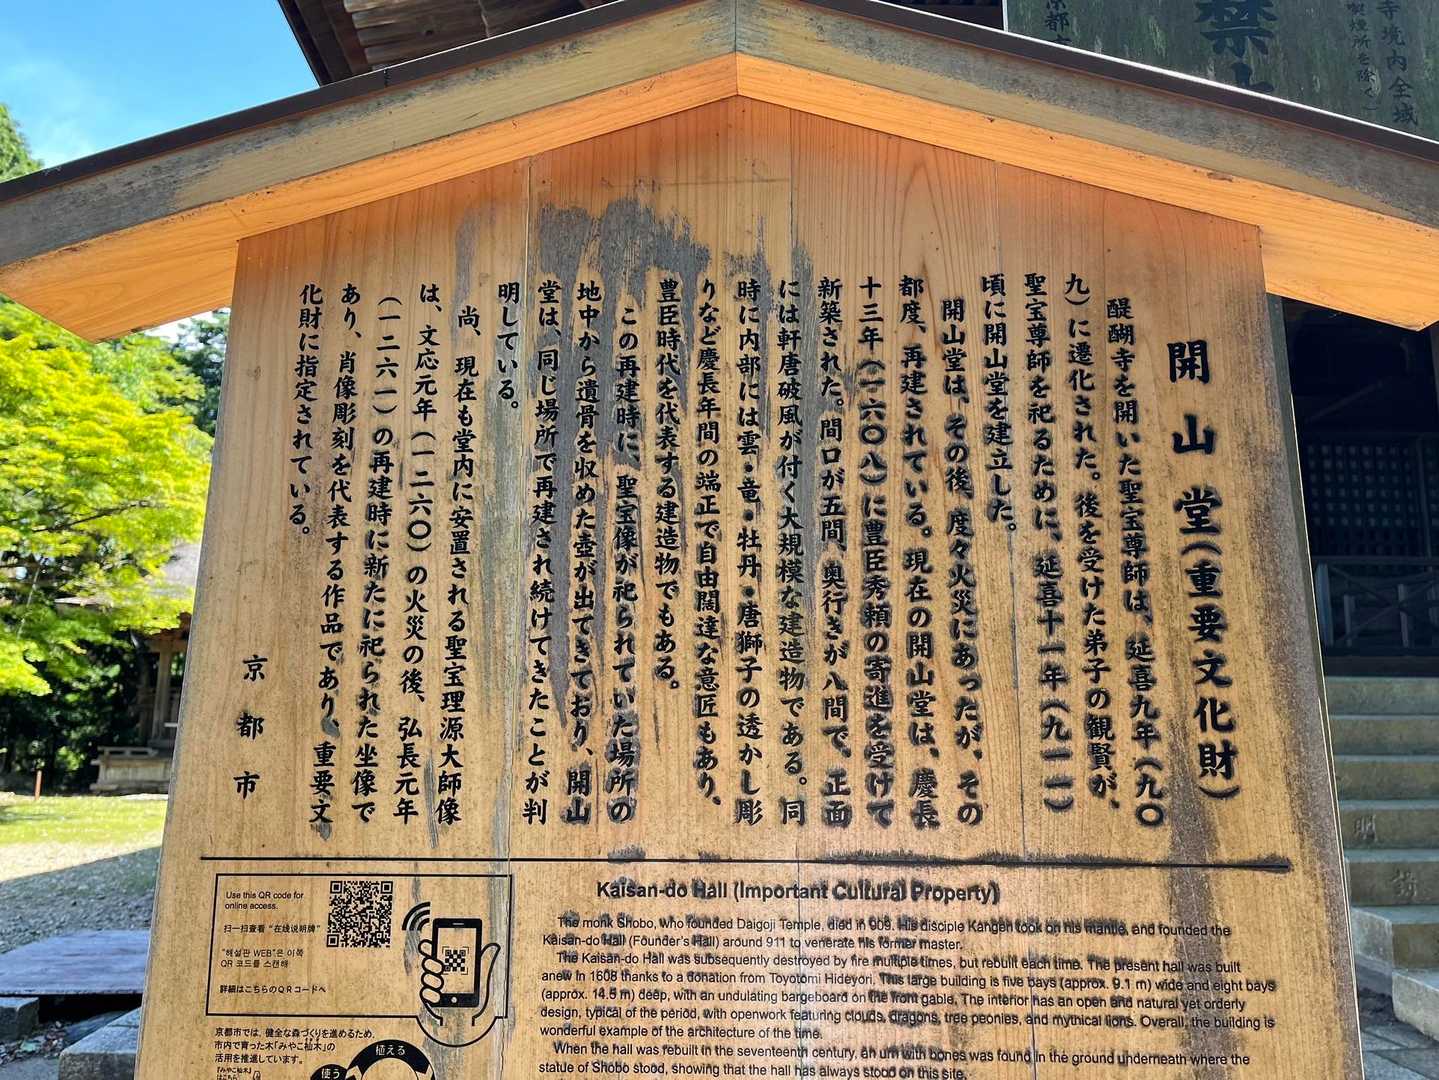 開山堂(重要文化財)
醍醐寺を開いた聖宝尊師は、延喜九年(九〇
九)に遷化された。後を受けた弟子の観賢が、
聖宝尊師を祀るために、延喜十一年(九一一)
頃に開山堂を建立した。
開山堂は、その後、度々火災にあったが、その
都度、再建されている。現在の開山堂は、慶長
十三年(一六〇八)に豊臣秀頼の寄進を受けて
新築された。間口が五間、奥行きが八間で、正面
には軒唐破風が付く大規模な建造物である。同
時に内部には雲・竜・牡丹・唐獅子の透かし彫
りなど慶長年間の端正で自由闊達な意匠もあり、
豊臣時代を代表する建造物でもある。
この再建時に、聖宝像が祀られていた場所の
地中から遺骨を収めた壺が出てきており、開山
堂は、同じ場所で再建され続けてきたことが判
明している。
尚、現在も堂内に安置される聖宝理源大師像
は、文応元年(一二六〇)の火災の後、弘長元年
(一二六一)の再建時に新たに祀られた坐像で
あり、肖像彫刻を代表する作品であり、重要文
化財に指定されている。
京都市
Kaisan-do Hall (Important Cultural Property)
The monk Shobo, who founded Daigoji Temple, died in 909. His disciple Kangen took on his mantle, and founded the
Kaisan-do Hall (Founder's Hall) around 911 to venerate his former master.
The Kaisan-do Hall was subsequently destroyed by fire multiple times, but rebuilt each time. The present hall was built
anew in 1608 thanks to a donation from Toyotomi Hideyori. This large building is five bays (approx. 9.1 m) wide and eight bays
(approx. 14.5 m) deep, with an undulating bargeboard on the front gable. The interior has an open and natural yet orderly
design, typical of the period, with openwork featuring clouds, dragons, tree peonies, and mythical lions. Overall, the building is
wonderful example of the architecture of the time.
When the hall was rebuilt in the seventeenth century, an urn with bones was found in the ground underneath where the
statue of Shobo stood, showing that the hall has always stood on this site.
Use this QR code for
online access.
扫一扫查看“在线说明牌”
"해설판 WEB"은 이쪽
QR 코드를 스캔해
詳細はこちらのQRコードへ
京都市では、健全な森づくりを進めるため、
市内で育った木「みやこ杣木」の
活用を推進しています。
「みやこ杣木」
はこちら
植える
使う
寺境内全域
喫煙所を除く)
京都市
禁止